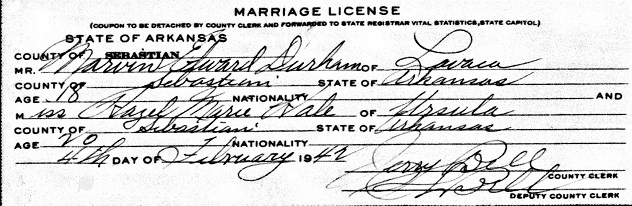 MARRIAGE LICENSE
(COUPON TO BE DETACHED BY COUNTY CLERK AND FORWARDED TO STATE REGISTRAR VITAL STATISTICS, STATE CAPITOL)
STATE OF ARKANSAS
COUNTY OF SEBASTIAN
MR. Marvin Edward Durham OF Lavaca
COUNTY OF Sebastian STATE OF Arkansas
AGE 18 NATIONALITY AND
Miss Hazel Marie Hale OF Ursula
COUNTY OF Sebastian STATE OF Arkansas
AGE 20 NATIONALITY
4th DAY OF February 1942 Jerry Bell
COUNTY CLERK
Bell
DEPUTY COUNTY CLERK